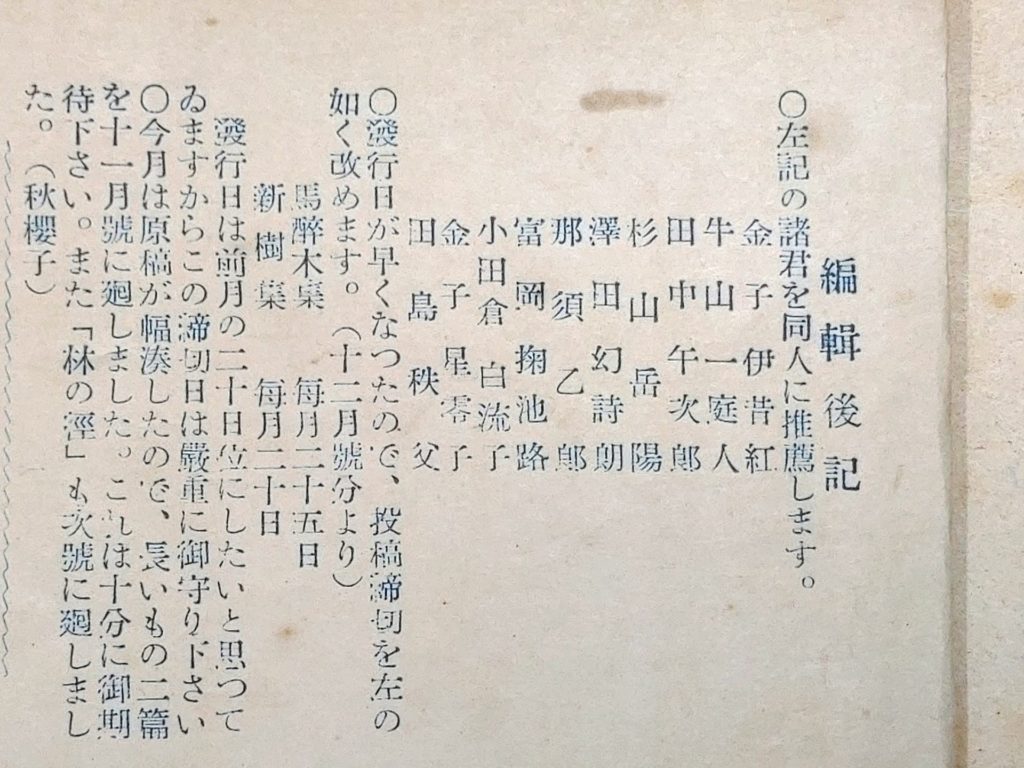 編輯後記
○左記の諸君を同人に推薦します。
金子伊昔紅
牛山一庭人
田中午次郎
杉山岳陽
澤田幻詩朗
那須乙郎
富岡掬池路
小田倉白流子
金子星零子
田島秩父
○發行日が早くなつたので、投稿締切を左の
如く改めます。（十二月號分より）
馬醉木集　每月二十五日
新樹集　每月二十日
發行日は前月の二十日位にしたいと思つて
ゐますからこの締切日は嚴重に御守り下さい
○今月は原稿が幅湊したので、長いもの二篇
を十一月號に廻しました。これは十分に御期
待下さい。また「林の徑」も次號に廻しまし
た。（秋櫻子）